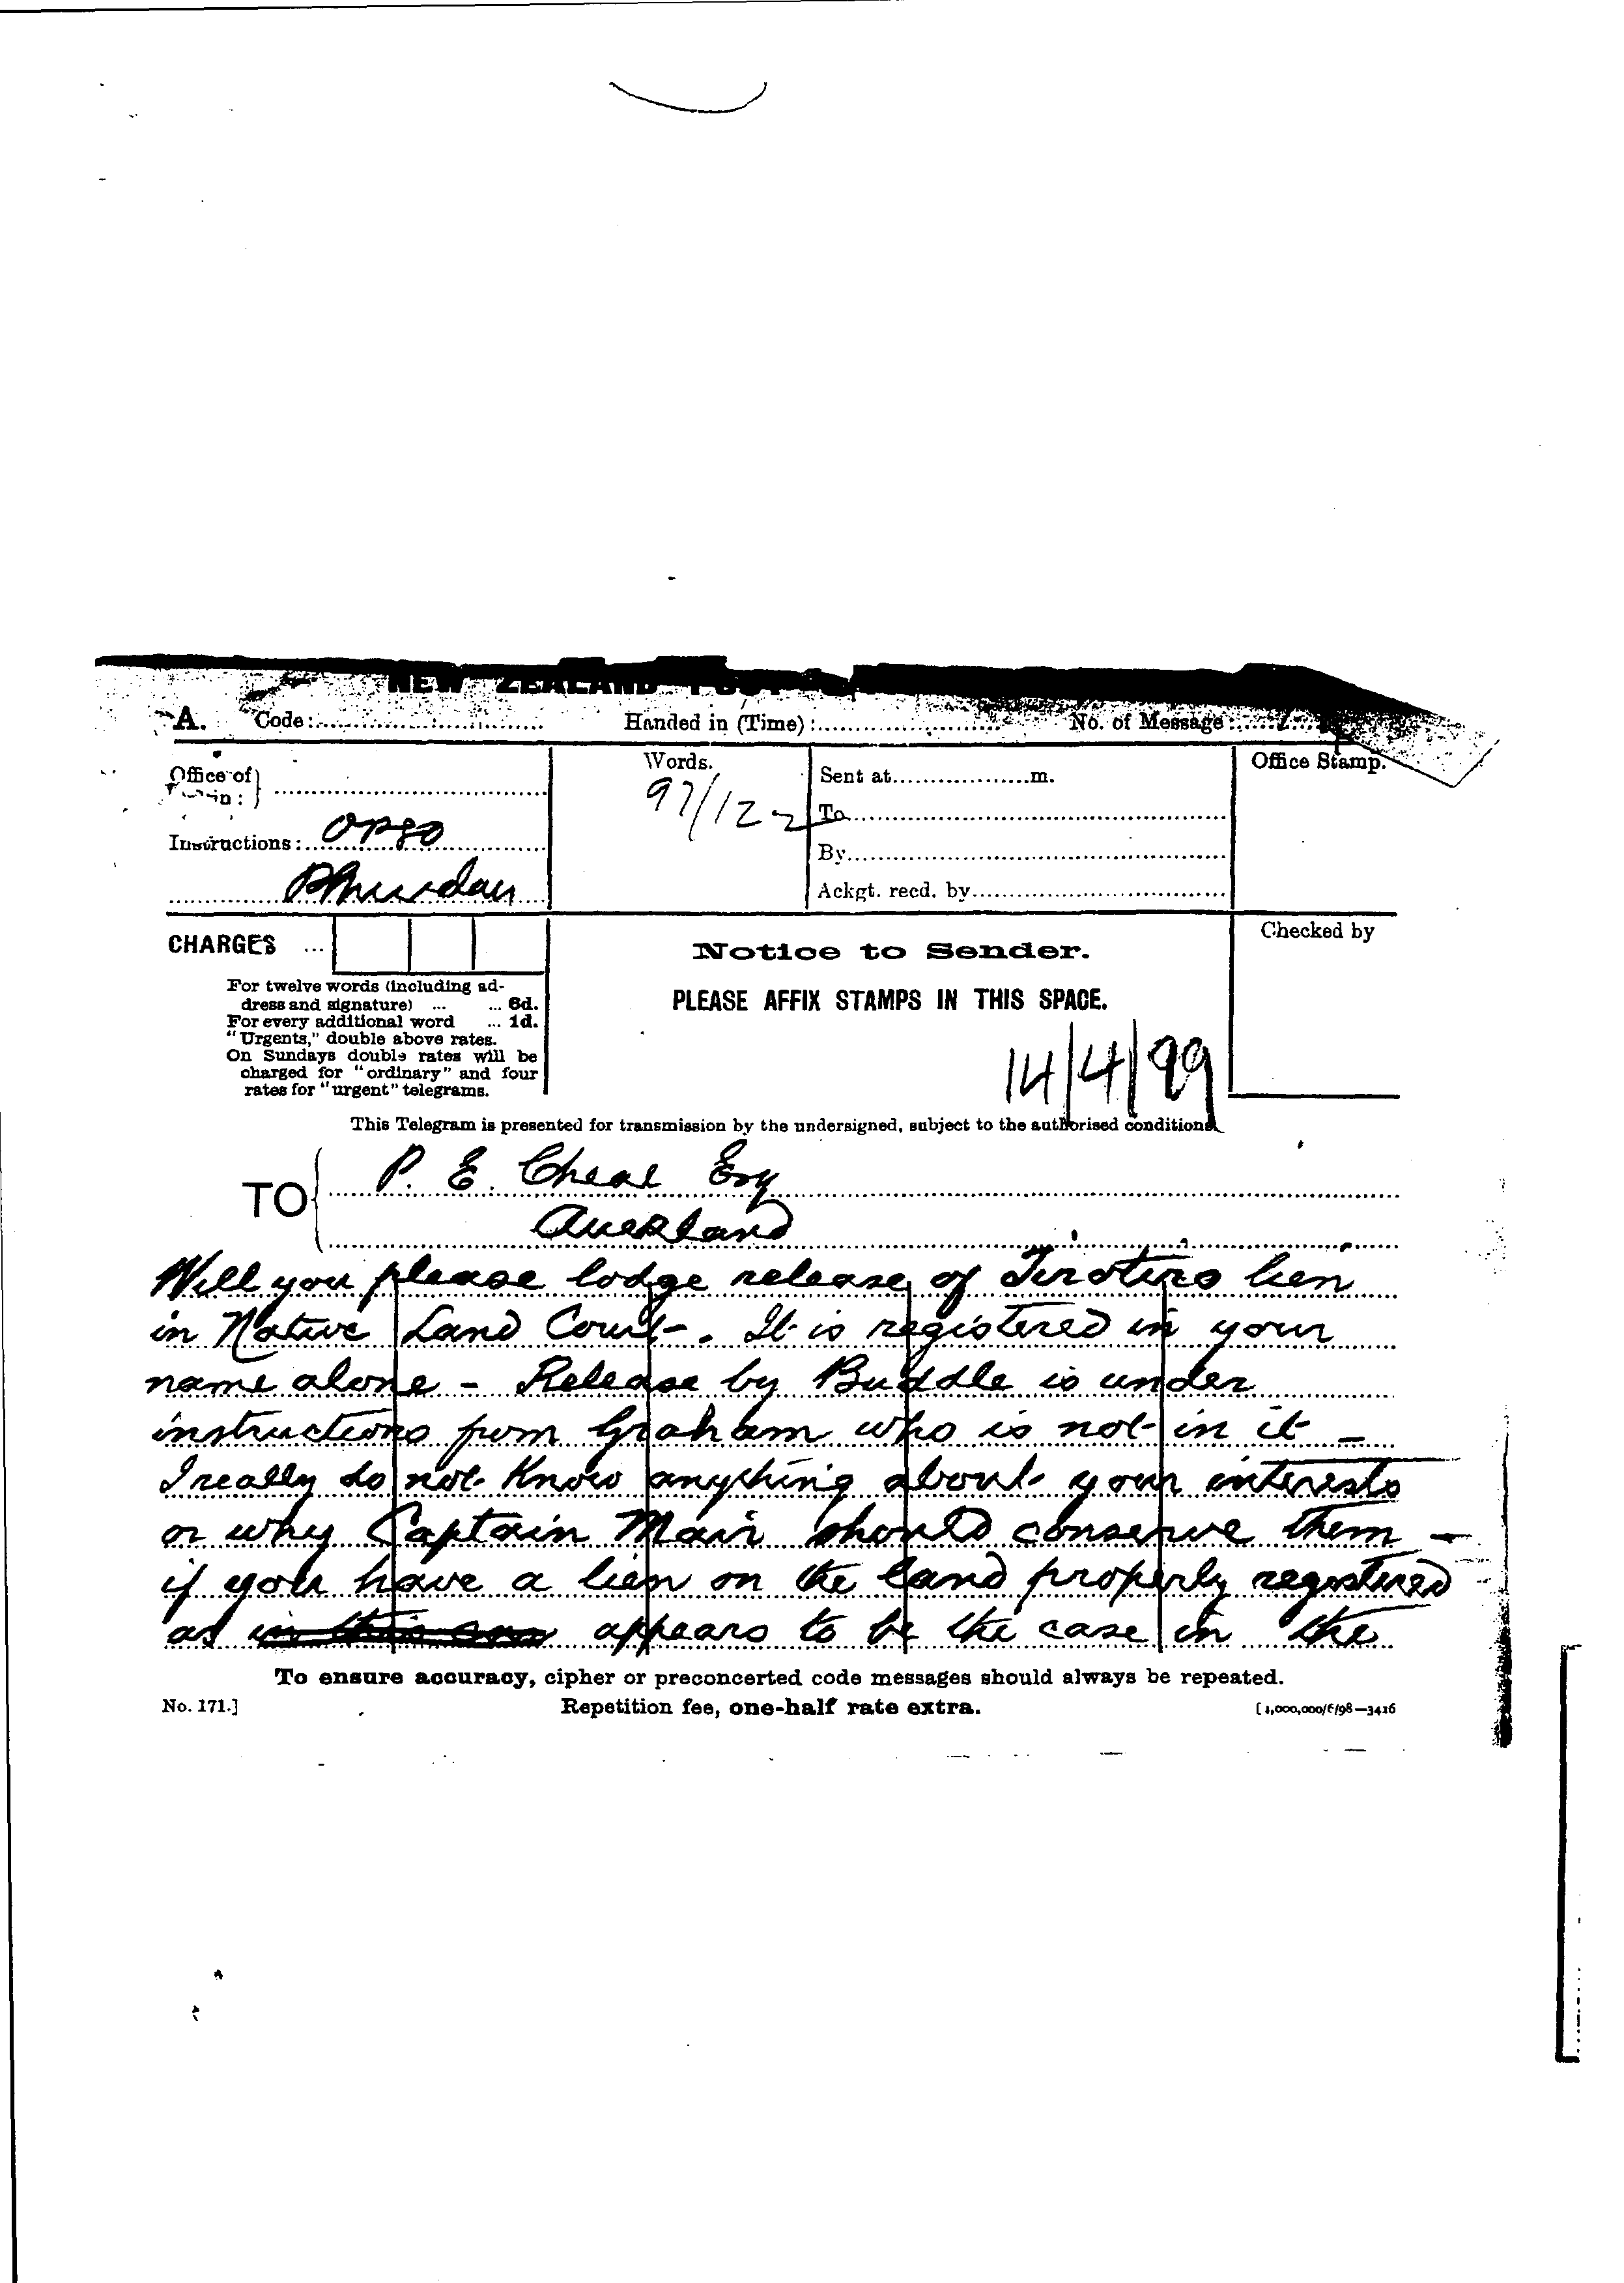 NEW ZEALAND POST
A. Code: Handed in (Time): No. of Message:
Office of
Words.
97/122
Sent at m.
Office Stamp.
To
Instructions: OPSO
By
Ackgt. recd. by
CHARGES ...
Notice to Sender.
Checked by
For twelve words (including ad-
dress and signature) ... ... 6d.
For every additional word ... 1d.
"Urgents," double above rates.
On Sundays double rates will be
charged for "ordinary" and four
rates for "urgent" telegrams.
PLEASE AFFIX STAMPS IN THIS SPACE.
14/4/99
This Telegram is presented for transmission by the undersigned, subject to the authorised conditions.
TO P. E. Cheal Esq
Auckland
Will you please lodge release of Tirotiro lien
in Native Land Court. It is registered in your
name alone - Release by Buddle is under
instructions from Graham who is not in it -
I really do not know anything about your interests
or why Captain Mair should conserve them -
if you have a lien on the land properly registered
as in this appears to be the case in the
To ensure accuracy, cipher or preconcerted code messages should always be repeated.
No. 171.] Repetition fee, one-half rate extra. [1,000,000/6/98—3416